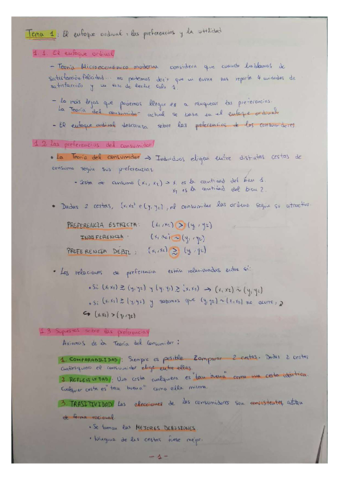 Tema 1: El enfoque ordinal: las preferencias y la utilidad
1.1. El enfoque ordinal
- Teoría Microeconómica moderna considera que cuando hablamos de
satisfacción/felicidad no podemos decir que un bien nos reporta 4 unidades de
satisfacción y un par de tantos solo 2
- Lo más lejos que podemos llegar es a
La Teoría del consumidor actual se basa en el enfoque ordinal
- El enfoque ordinal descansa sobre las preferencias de los consumidores
1.2 Las preferencias del consumidor
• La Teoría del consumidor → Individuos eligen entre distintas cestas de
consumo según sus preferencias
- Cesta de consumo (x₁, x₂) → x₁ es la cantidad del bien 1
x₂ es la cantidad del bien 2
• Dadas 2 cestas, (x₁, x₂) e (y₁, y₂), el consumidor las ordena según su
PREFERENCIA ESTRICTA: (x₁, x₂) > (y₁, y₂)
INDIFERENCIA (x₁, x₂) ~ (y₁, y₂)
PREFERENCIA DÉBIL: (x₁, x₂) ≥ (y₁, y₂)
• Las relaciones de preferencia están relacionadas entre sí
• Si (x₁, x₂) ≥ (y₁, y₂) y (y₁, y₂) ≥ (x₁, x₂) → (x₁, x₂) ~ (y₁, y₂)
• Si (x₁, x₂) ≥ (y₁, y₂) y sabemos que (y₁, y₂) ~ (x₁, x₂) no ocurre
↳ (x₁, x₂) > (y₁, y₂)
1.3 Supuestos sobre las preferencias
Axiomas de la Teoría del consumidor:
1. COMPARABILIDAD: Siempre es posible comparar 2 cestas. Dadas 2 cestas
cualesquiera el consumidor elige entre ellas
2. REFLEXIVIDAD: Una cesta cualquiera es "tan buena" como una cesta idéntica
Cualquier cesta es "tan buena" como ella misma
3. TRANSITIVIDAD: Las elecciones de los consumidores son consistentes
de forma racional
• Se toman las MEJORES DECISIONES
• Ninguna de las cestas
- 1 -